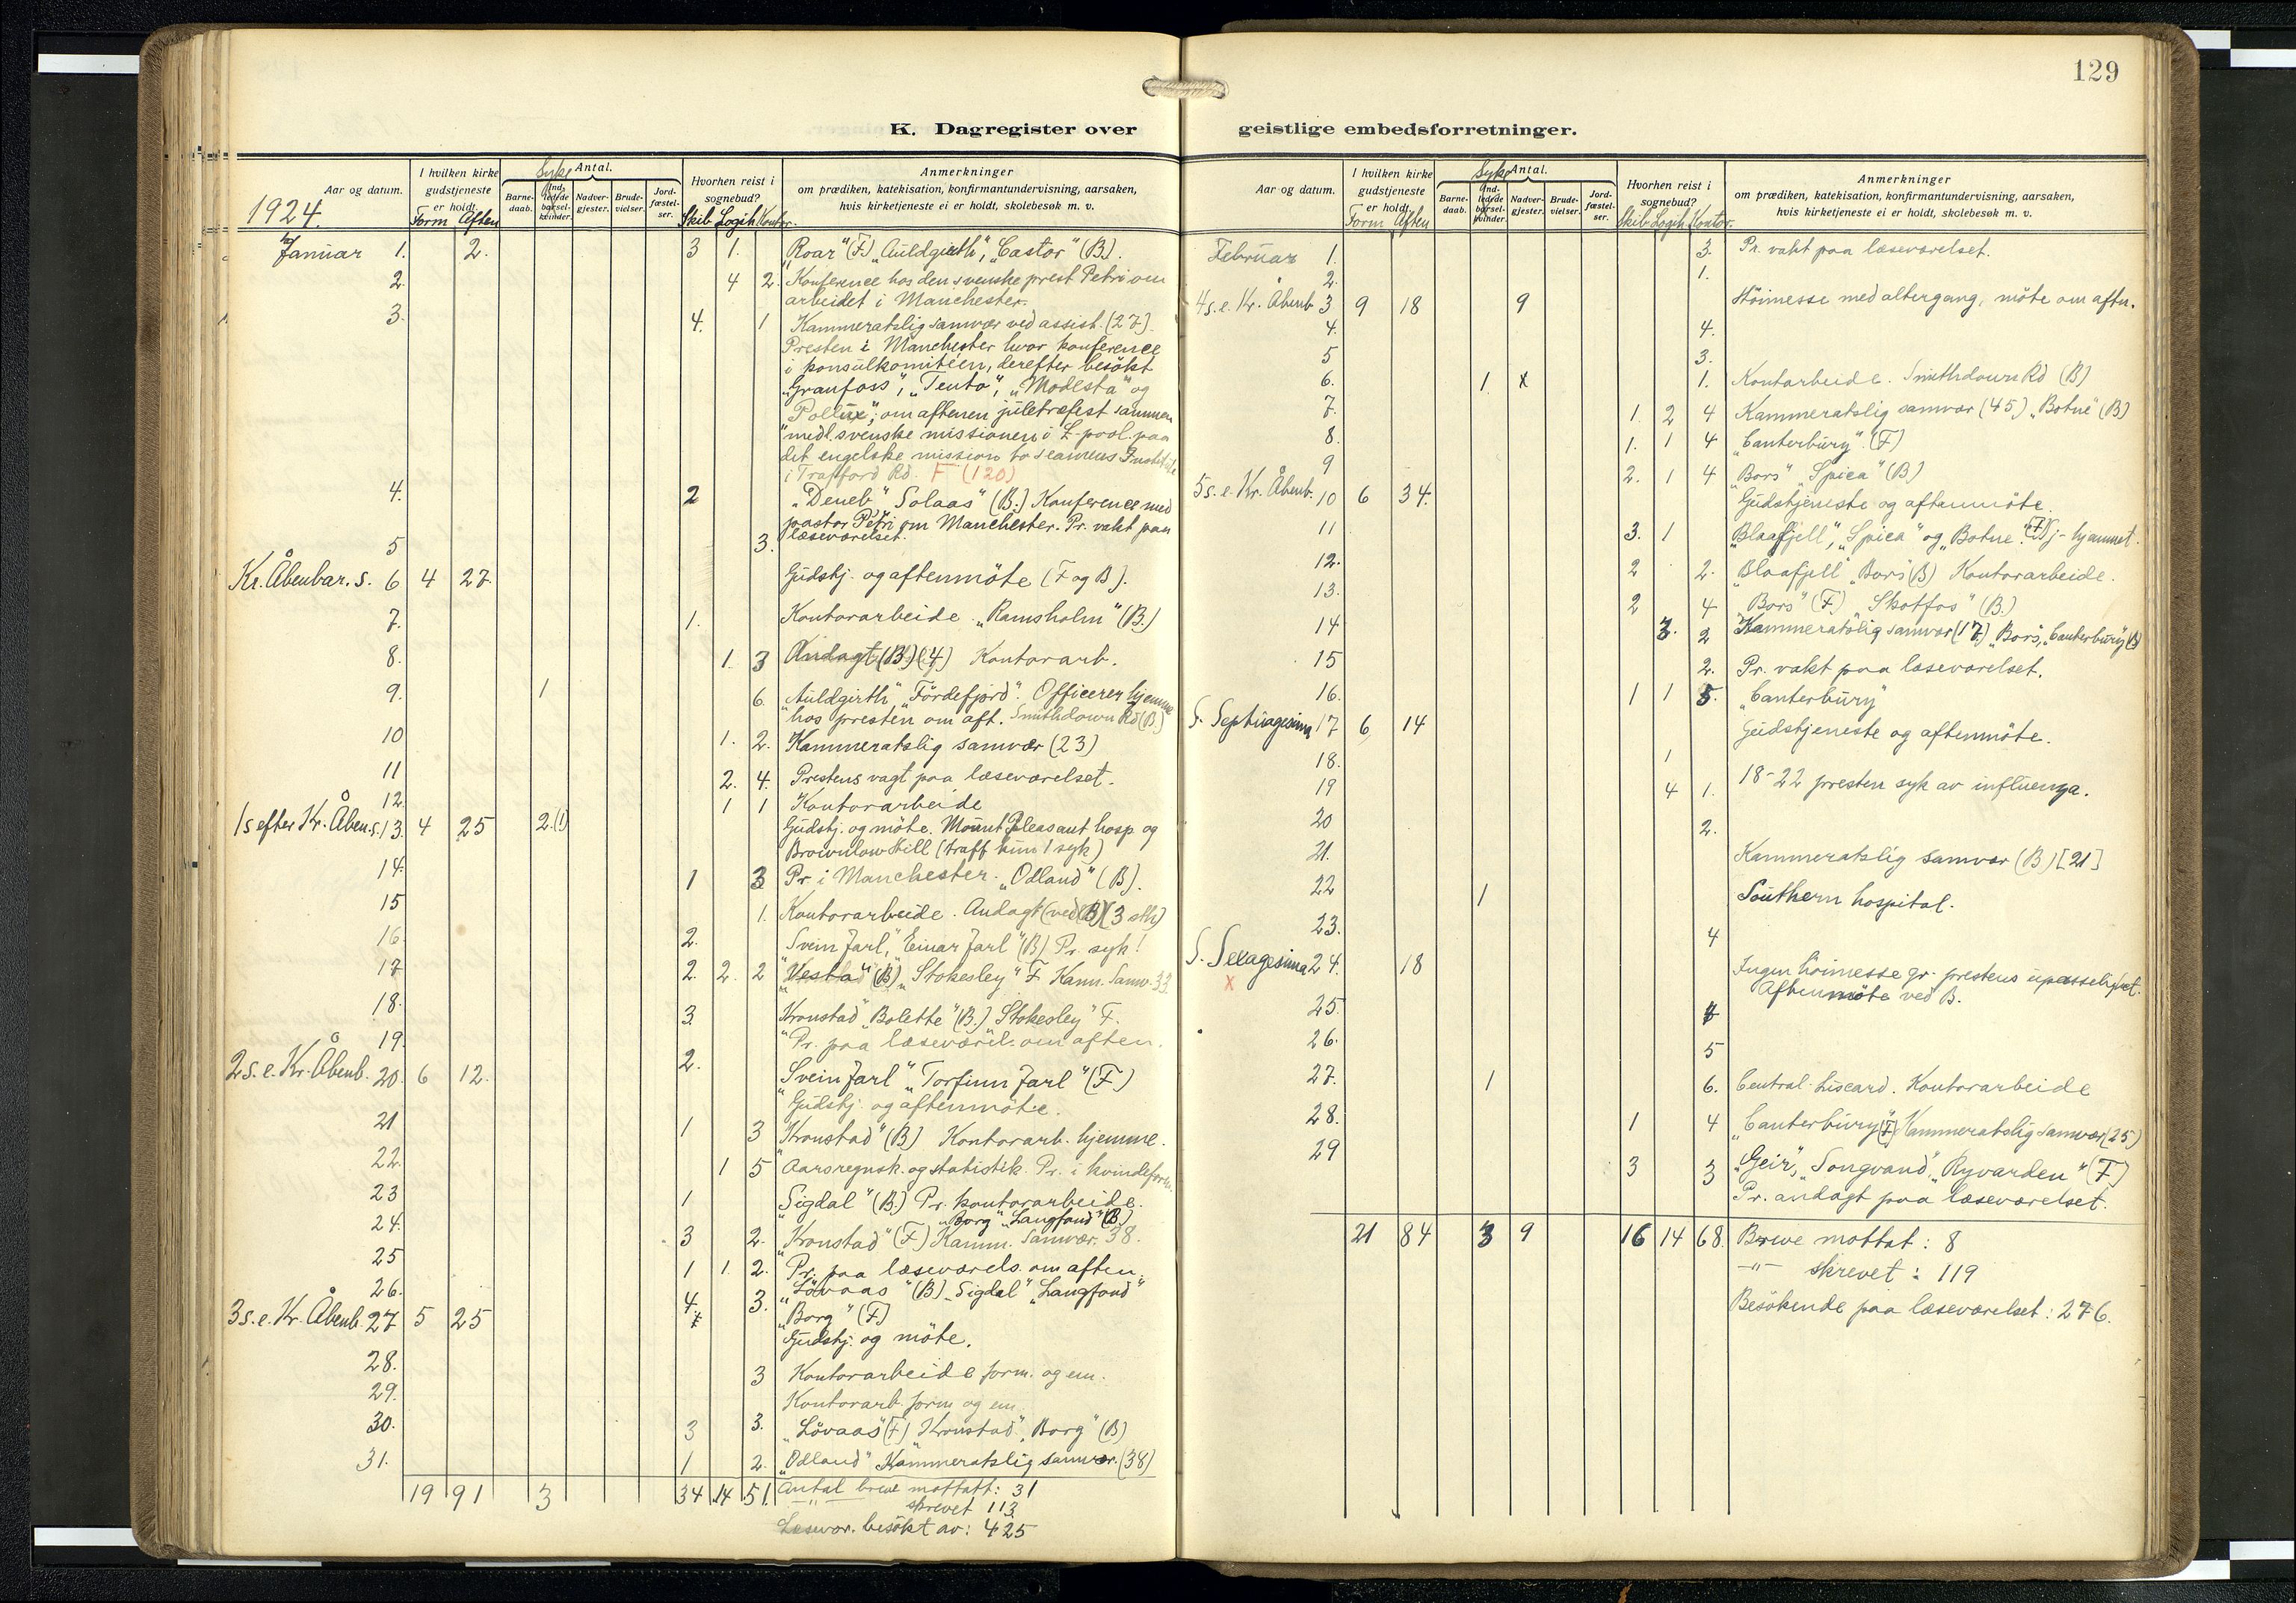 129
K. Dagregister over
geistlige embedsforretninger.
Aar og datum.
1924.
I hvilken kirke gudstjeneste er holdt.
Form Aften
Antal.
Syke
Barne-daab.
Ind-ledede barsel-kvinder.
Nadver-gjester.
Brude-vielser.
Jord-fæstel-ser.
Hvorhen reist i sognebud?
Skib Logih Kontor.
Anmerkninger
om prædiken, katekisation, konfirmantundervisning, aarsaken,
hvis kirketjeneste ei er holdt, skolebesøk m. v.
Januar 1. 2. 3 1. "Roar" (F) "Auldgirth", "Castor" (B).
2. 4 2. Konference hos den svenske prest Petri om
arbeidet i Manchester.
3. 4. 1 Kammeratslig samvær ved assist. (27).
Presten i Manchester hvor konference
i konsulkomitéen, derefter besökt
"Granfoss", "Tento", "Modesta" og
"Pollux", om aftenen juletræfest sammen
med svenske missionen i L-pool. paa
det engelske mission to seamens Institute
i Trafford Rd. F (120)
4. 2 "Deneb" Solaas" (B.) Konference med
pastor Petri om Manchester. Pr. vakt paa
læseværelset.
5 3.
Kr. Åbenbar. s. 6 4 27. Gudstj. og aftenmöte (F og B).
7. 1. Kontorarbeide "Ramsholm" (B.)
8. 1. 3 Andagt (B.) (4) Kontorarb.
9. 1 6. "Auldgirth" "Fördefjord". Officerer hjemme
hos presten om aft. Smithdown Rd (B.)
10 1. 2. Kammeratslig samvær (23)
11 2. 4. Prestens vagt paa læseværelset.
12. 1 1 Kontorarbeide
1 s efter Kr. Åben.s. 13. 4 25 2.(1) Gudstj. og möte. Mount Pleasant hosp og
Brownlow Hill (traff kun 1 syk)
14. 1 3 Pr. i Manchester. "Odland" (B).
15 1. Kontorarbeide. Andagt (ved B) [3 stk]
16. 2. "Svein Jarl", "Einar Jarl" (B) Pr. syk!
17 2. 2. 2 "Vestad" (B) "Stokesley" F. Kam. Samv. 33
18. 3. "Kronstad" "Bolette" (B.) Stokesley" F.
Pr. paa læseværel. om aften.
19. 2. "Svein Jarl" "Torfinn Jarl" (F.)
2 s. e. Kr. Åbenb. 20. 6 12. Gudstj. og aftenmöte.
21 1 3 "Kronstad" (B) Kontorarb. hjemme.
22. 1 5 Aarsregnsk. og statistik. Pr. i kvindeforen.
23 1 "Sigdal" (B.) Pr. kontorarbeide.
"Borg" "Langfond" (B.)
24. 3 2. "Kronstad" (F) Kamm. Samvær. 38.
25 1 1. 2. Pr. paa læseværels. om aften.
26. 4. 3. "Lövaas" (B) "Sigdal" "Langfond"
"Borg" (F.)
3 s. e. Kr. Åbenb. 27 5 25 Gudstj. og möte.
28. 3 Kontorarbeide form. og em.
29. Kontorarb. form og em.
30. 3 3. "Lövaas" (F) Kronstad", "Borg" (B)
31. 1 2. "Odland" Kammeratslig samvær. (38)
19 91 3 34 14 51. Antal breve mottatt: 31
—"— skrevet 113.
Læsevær. besökt av: 425
Aar og datum.
I hvilken kirke gudstjeneste er holdt.
Form Aften
Antal.
Syke
Barne-daab.
Ind-ledede barsel-kvinder.
Nadver-gjester.
Brude-vielser.
Jord-fæstel-ser.
Hvorhen reist i sognebud?
Skib Logih Kontor.
Anmerkninger
om prædiken, katekisation, konfirmantundervisning, aarsaken,
hvis kirketjeneste ei er holdt, skolebesøk m. v.
Februar 1. 3. Pr. vakt paa læseværelset.
2. 1.
4 s. e. Kr. Åbenb 3 9 18 9 Höimesse med altergang, möte om aftn.
4. 4.
5 3.
6. 1 x 1. Kontarbeide. Smithdown Rd (B)
7. 1. 2 4 Kammeratslig samvær (45) "Botne" (B)
8. 1. 1 4 "Canterbury" (F)
9 2. 1 4 "Bors" "Spica" (B)
5 s. e. Kr. Åbenb. 10 6 34. Gudstjeneste og aftenmöte.
11 3. 1 "Blaafjell", "Spica" og "Botne" (F) j-hjemmet.
12. 2 2. "Blaafjell" "Bors" (B) Kontorarbeide.
13. 2 4 "Bors" (F.) "Skotfos" (B.)
14 3. 2 Kammeratslig samvær (17.) "Bors", "Canterbury" (B)
15 2. Pr. vakt paa læseværelset.
16. 1 1 5. "Canterbury"
S. Septuagesima 17 6 14 Gudstjeneste og aftenmöte.
18. 1
19 4 1. 18-22 presten syk av influenza.
20 2.
21. Kammeratslig samvær (B) [21]
22 1 Southern hospital.
23. 4
S. Sexagesima 24. 18 Ingen höimesse gr. prestens upasselighet.
x Aftenmöte ved B.
25.
26. 5
27. 1 6. Central Liscard. Kontorarbeide
28. 1 4 "Canterbury" (F) Kammeratslig samvær (25)
29 3 3 "Geir", "Songvand", "Ryvarden" (F.)
Pr. andagt paa læseværelset.
21 84 3 9 16 14 68. Breve mottat: 8
—"— skrevet: 119
Besökende paa læseværelset: 276.